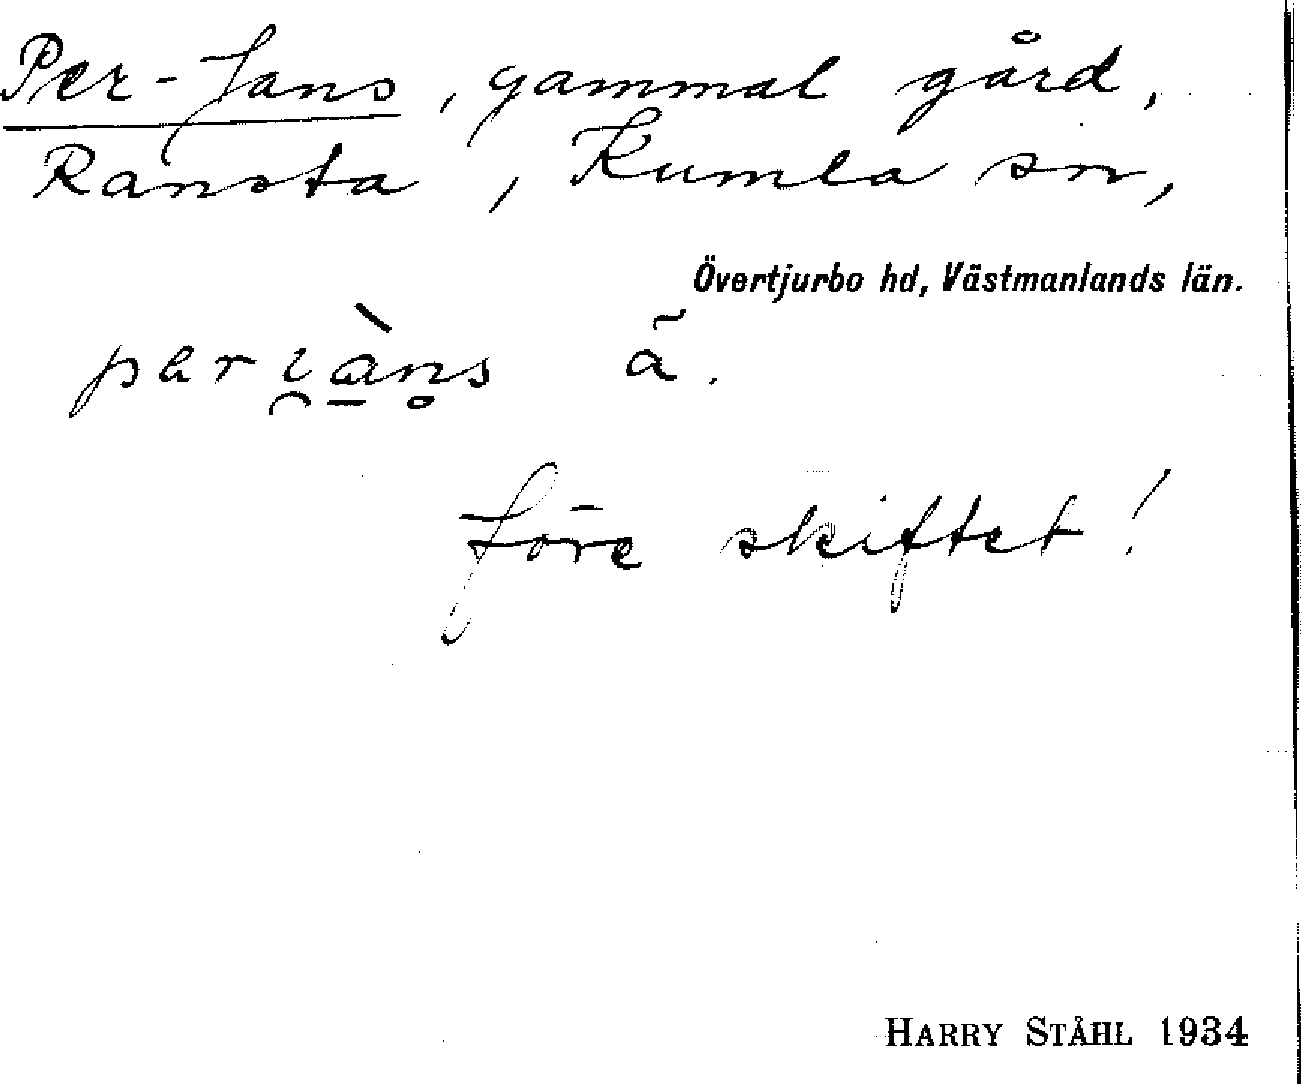 Per-Jans, gammal gård,
Ransta, Kumla sn,
Övertjurbo hd, Västmanlands län.
pɐr i̯à̱n̥s ã.
före skiftet!
HARRY STÅHL 1934